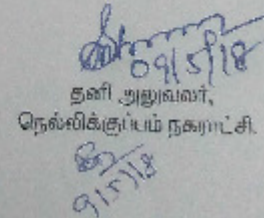 09/5/18
தனி அலுவலர்,
நெல்லிக்குப்பம் நகராட்சி.
9/5/18